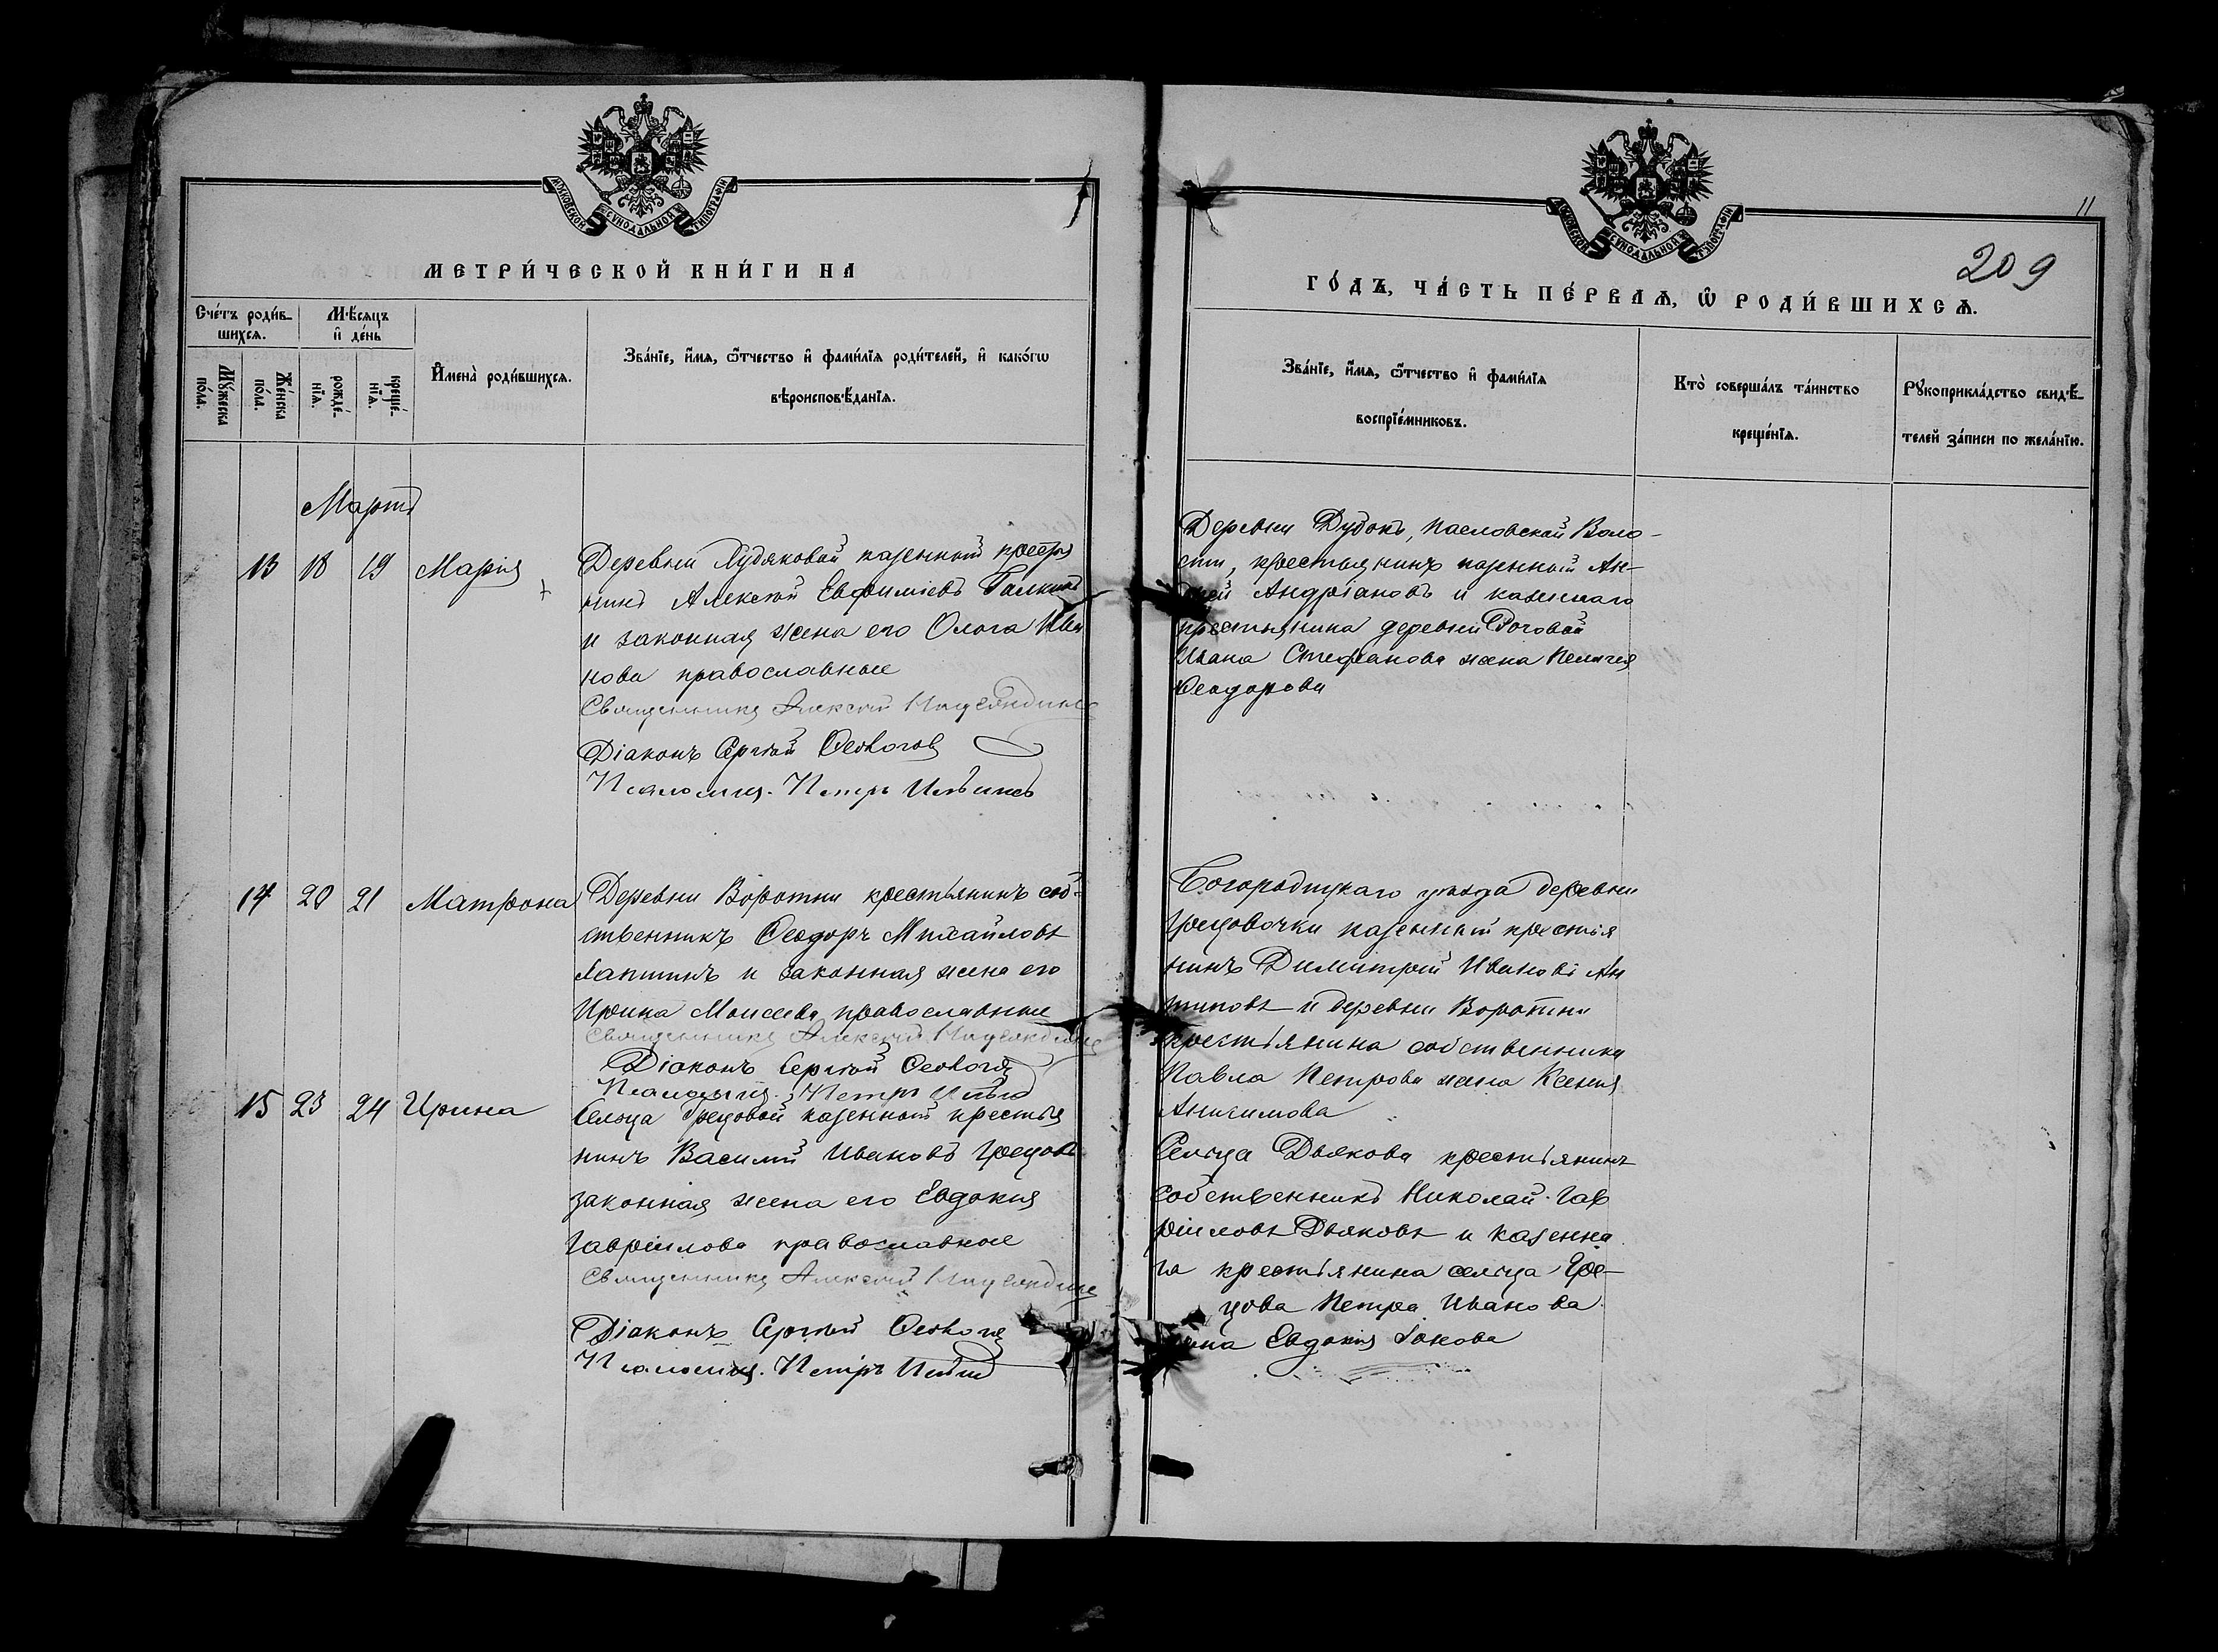 МОСКОВСКОЙ СУНОДАЛЬНОЙ ТИПОГРАФІИ
МЕТРИ́ЧЕСКОЙ КНИ́ГИ НА
Сче́тъ роди́в-
шихсѧ.
Мѣ́сѧцъ
и҆ де́нь
Мꙋ́жеска
по́ла.
Же́нска
по́ла.
рожде́-
нїѧ.
креще́-
нїѧ.
И҆мена̀ роди́вшихсѧ.
Зва́нїе, и҆́мѧ, ѻ҆́тчество и҆ фами́лїѧ роди́телей, и҆ како́гѡ
вѣроисповѣ́данїѧ.
Мартъ
13 18 19 Марія
Деревни Худяковой казенный крестья
нинъ Алексѣй Евфиміевъ Галкинъ
и законная жена его Олга Ива
нова православные
Священникъ Алексѣй
Діаконъ Сергѣй
Псаломщ. Петръ Ильинъ
14 20 21 Матрона
Деревни Воротни крестьянинъ соб-
ственникъ Ѳеодоръ Михайловъ
Лаптинъ и законная жена его
Ирина Моисеева православные
Священникъ Алексѣй
Діаконъ Сергѣй
Псаломщ. Петръ Ильинъ
15 23 24 Ирина
Сельца Грецовой казенный крестья
нинъ Василій Ивановъ Грецовъ
законная жена его Евдокия
Гавріилова православные
Священникъ Алексѣй
Діаконъ Сергѣй
Псаломщ. Петръ Ильинъ
МОСКОВСКОЙ СУНОДАЛЬНОЙ ТИПОГРАФІИ
11
209
ГО́ДЪ, ЧА́СТЬ ПЕ́РВАѦ, Ѡ҆ РОДИ́ВШИХСѦ.
Зва́нїе, и҆́мѧ, ѻ҆́тчество и҆ фами́лїѧ
воспрїе́мниковъ.
Кто̀ соверша́лъ та́инство
креще́нїѧ.
Рꙋкоприкла́дство свидѣ́-
телей за́писи по жела́нїю.
Деревни Дубокъ, Павловской Воло-
сти, крестьянинъ казенный Ан-
дрей Андріановъ и казеннаго
крестьянина деревни Роговой
Ивана Стефанова жена Пелагея
Ѳеодорова
Богородицкаго уѣзда деревни
Грецовочки казенный крестья
нинъ Димитрій Ивановъ Ан
типовъ и деревни Воротни
крестьянина собственника
Павла Петрова жена Ксения
Анисимова
Сельца Дьякова крестьянинъ
собственникъ Николай Гав
ріиловъ Дьяковъ и казенна
го крестьянина сельца Гре-
цова Петра Иванова
жена Евдокия Іакова